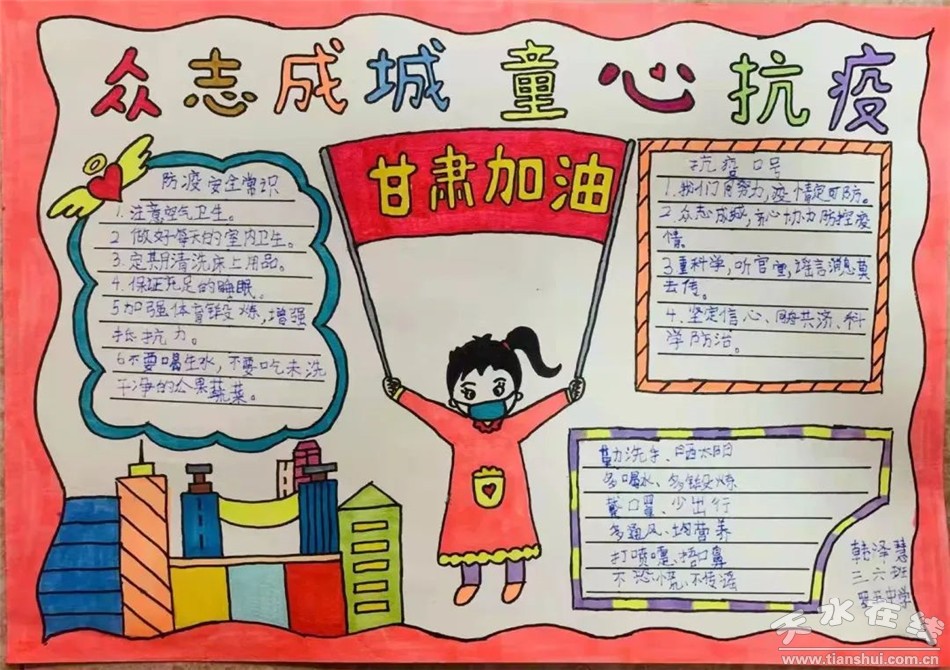 众志成城 童心抗疫
甘肃加油
防疫安全常识
1.注意空气卫生。
2.做好每天的室内卫生。
3.定期清洗床上用品。
4.保证充足的睡眠。
5加强体育锻炼,增强
抵抗力。
6不要喝生水,不要吃未洗
干净的公果蔬菜。
抗疫口号
1.我们同努力,疫情定可防。
2.众志成城,齐心协力防控疫
情。
3重科学,听官宣,谣言消息莫
去传。
4.坚定信心、共济、科
学防治。
勤洗手、晒太阳
多喝水、多锻炼
戴口罩、少出行
多通风、均营养
打喷嚏、捂口鼻
不恐慌、不传谣
韩泽慧
三、六班
中学
天水在线
www.tianshui.com.cn